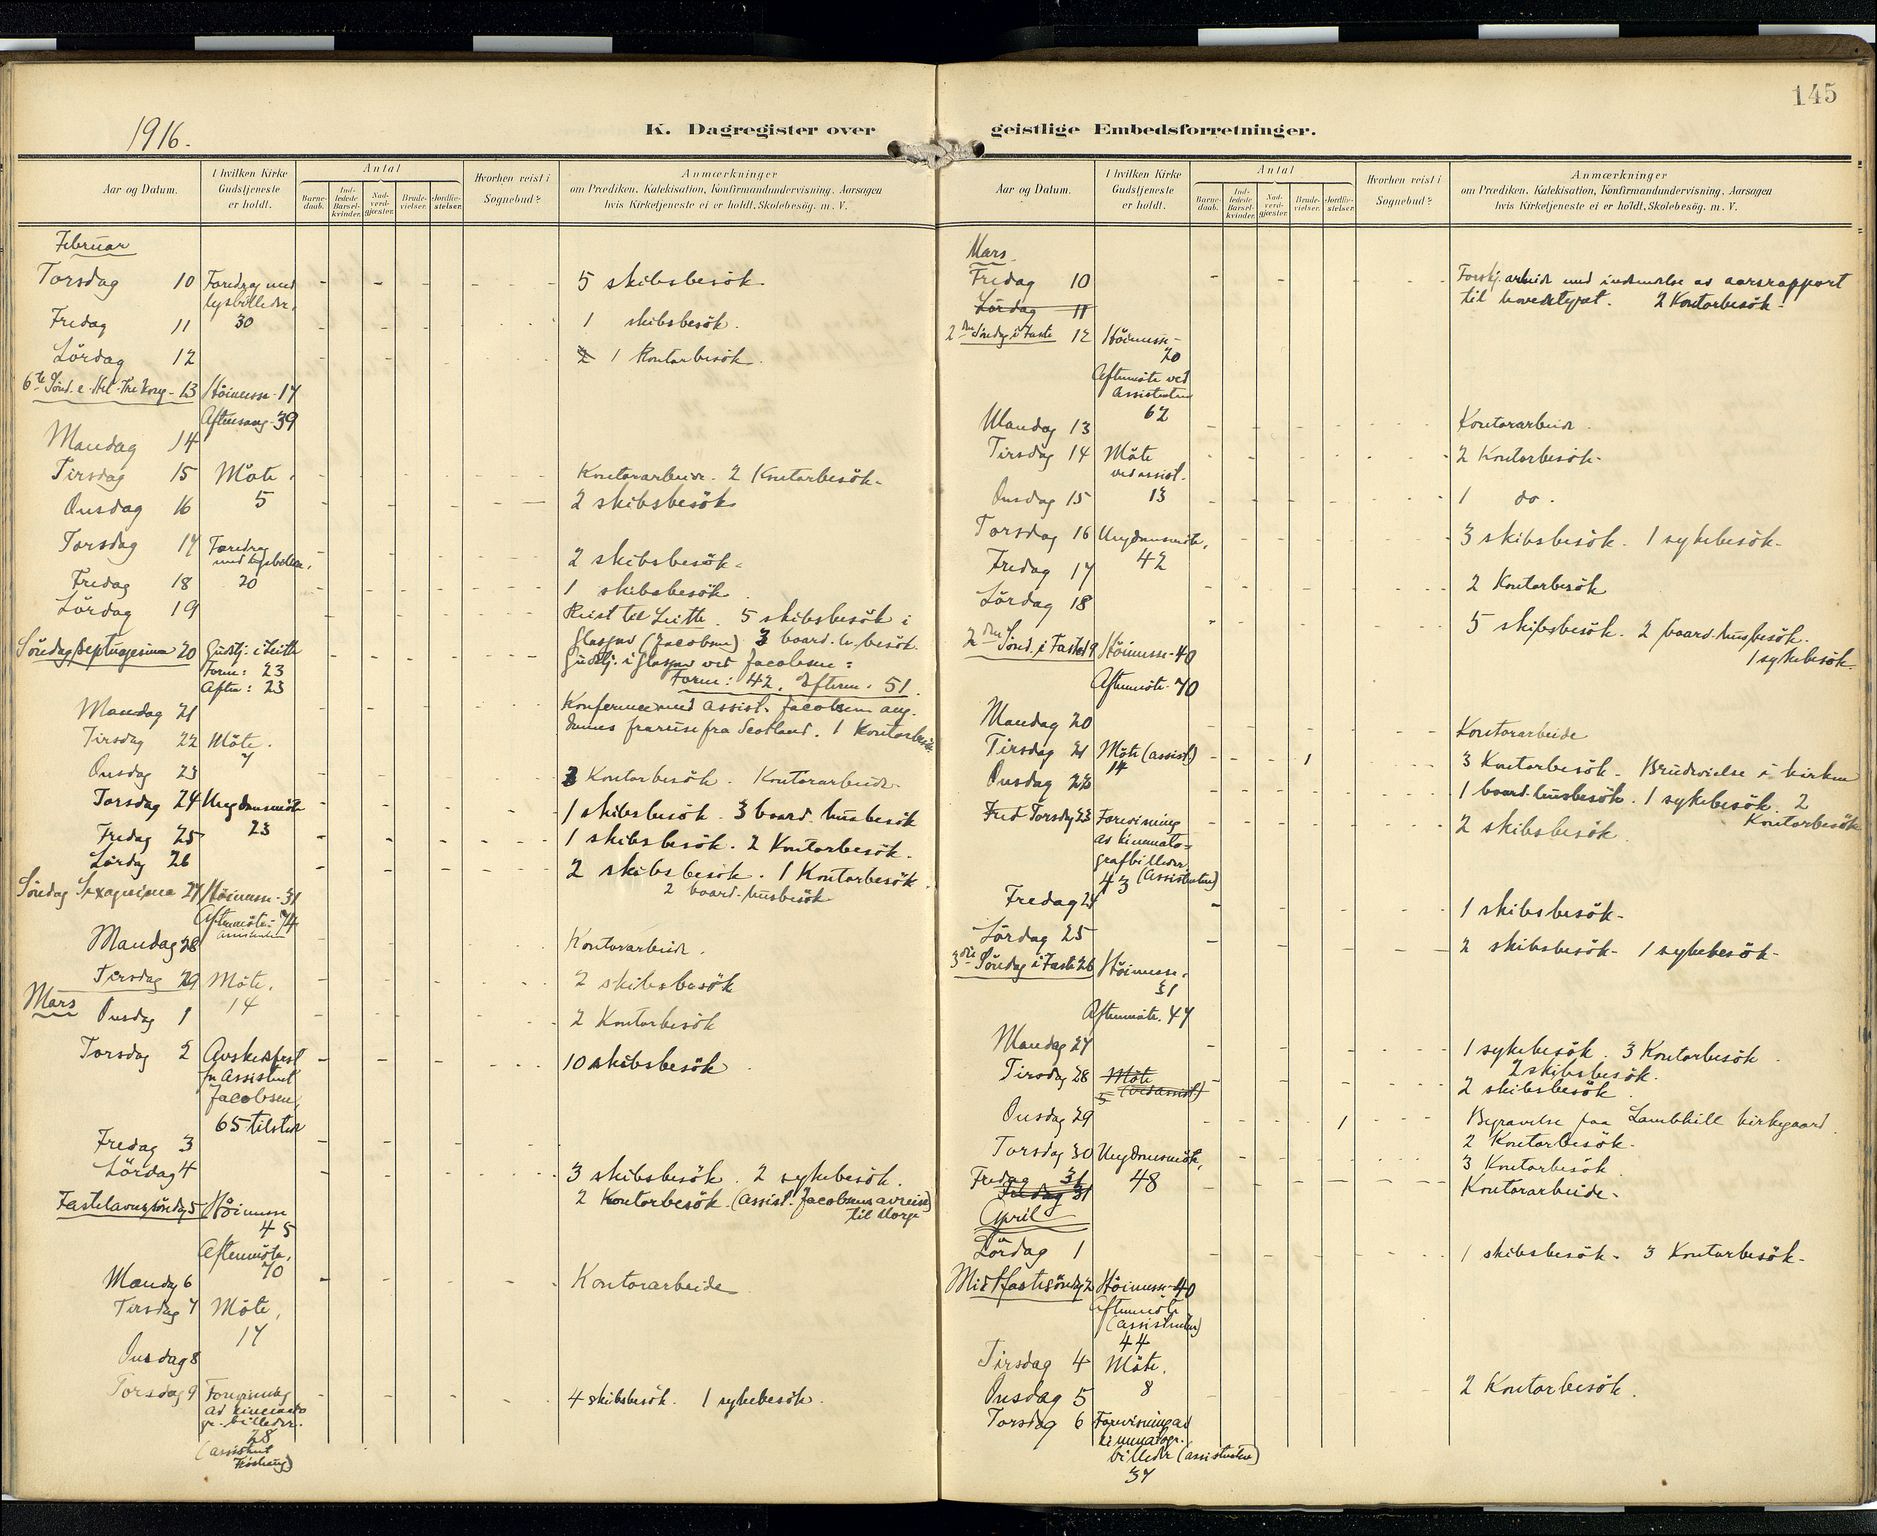 145
1916.
K. Dagregister over geistlige Embedsforretninger.
Aar og Datum.
I hvilken Kirke Gudstjeneste er holdt.
Antal
Barne-daab.
Ind-ledede Barsel-kvinder.
Nad-verd-gjæster.
Brude-vielser.
Jordfæ-stelser.
Hvorhen reist i Sognebud?
Anmærkninger
om Prædiken, Katekisation, Konfirmandundervisning, Aarsagen
hvis Kirketjeneste ei er holdt, Skolebesøg. m. V.
Februar
Torsdag 10 Foredrag med lysbilleder. 30 5 skibsbesök.
Fredag 11 1 skibsbesök.
Lördag 12 1 Kontorbesök.
6te Sönd. e. Hel. Tre Kong. 13 Höimesse - 17
Aftensang - 39
Mandag 14
Tirsdag 15 Möte. 5 Kontorarbeide. 2 Kontorbesök.
Onsdag 16 2 skibsbesök
Torsdag 17 Foredrag med lysbilleder. 20 2 skibsbesök.
Fredag 18 1 skibsbesök.
Lördag 19 Reist til Leith. 5 skibsbesök i
Glasgow (Jacobsen) 3 board. h. besök.
Söndag Septuagesima 20 Gudstj. i Leith Gudstj. i Glasgow ved Jacobsen:
Form: 23 Form: 42. Efterm. 51.
Aften: 23
Mandag 21 Konference med assist. Jacobsen ang.
Tirsdag 22 Möte. 7 dennes frareise fra Scotland. 1 Kontorbesök
Onsdag 23 3 Kontorbesök. Kontorarbeide.
Torsdag 24 Ungdomsmöte 23 1 skibsbesök. 3 board. husbesök
Fredag 25 1 skibsbesök. 2 Kontorbesök.
Lördag 26 2 skibsbesök. 1 Kontorbesök.
2 board. husbesök
Söndag Sexagesima 27 Höimesse - 31
Aftenmöte - 74
assistenten
Mandag 28 Kontorarbeide.
Tirsdag 29 Möte. 14 2 skibsbesök
Mars
Onsdag 1 2 Kontorbesök
Torsdag 2 Avskedsfest for assistent Jacobsen, 65 tilsted 10 skibsbesök
Fredag 3
Lördag 4 3 skibsbesök. 2 sykebesök.
Fastelavnssöndag 5 Höimesse 45 2 Kontorbesök (assist. Jacobsens avreise)
til Norge
Aftenmöte, 70
Mandag 6 Kontorarbeide
Tirsdag 7 Möte, 17
Onsdag 8
Torsdag 9 Forevisning av kinemato gr. billeder. 28 4 skibsbesök. 1 sykebesök.
(assistent
Aar og Datum.
I hvilken Kirke Gudstjeneste er holdt.
Antal
Barne-daab.
Ind-ledede Barsel-kvinder.
Nad-verd-gjæster.
Brude-vielser.
Jordfæ-stelser.
Hvorhen reist i Sognebud?
Anmærkninger
om Prædiken, Katekisation, Konfirmandundervisning, Aarsagen
hvis Kirketjeneste ei er holdt, Skolebesög. m. V.
Mars.
Fredag 10 Forskj. arbeide med indsendelse av aarsrapport
til hovedstyret. 2 Kontorbesök.
Lördag 11
2den Söndag i Faste 12 Höimesse - 20
Aftenmöte ved Assistenten 62
Mandag 13 Kontorarbeide.
Tirsdag 14 Möte ved assist. 13 2 Kontorbesök.
Onsdag 15 1 do.
Torsdag 16 Ungdomsmöte, 42 3 skibsbesök. 1 sykebesök.
Fredag 17 2 Kontorbesök
Lördag 18 5 skibsbesök. 2 board. husbesök.
1 sykebesök.
2den Sönd. i Faste 19 Höimesse - 40
Aftenmöte. 70
Mandag 20 Kontorarbeide
Tirsdag 21 Möte (assist) 14 1 3 Kontorbesök. Brudevielse i kirken
Onsdag 22 1 board. husbesök. 1 sykebesök. 2
Kontorbesök
Fred Torsdag 23 Forevisning av kinemato=grafbilleder 43 (Assistenten) 2 skibsbesök.
Fredag 24 1 skibsbesök.
Lördag 25 2 skibsbesök. 1 sykebesök.
3die Söndag i Faste 26 Höimesse. 31
Aftenmöte. 47
Mandag 27 1 sykebesök. 3 Kontorbesök.
2 skibsbesök.
Tirsdag 28 Möte (ved assist) 5 2 skibsbesök.
Onsdag 29 1 Begravelse paa Lambhill kirkegaard.
2 Kontorbesök.
Torsdag 30 Ungdomsmöte, 48 3 Kontorbesök.
Fredag 31 Kontorarbeide.
Fredag 31
April
Lördag 1 1 skibsbesök. 3 Kontorbesök.
Midtfastesöndag 2 Höimesse - 40
Aftenmöte (assistenten) 44
Tirsdag 4 Möte. 8
Onsdag 5 2 Kontorbesök.
Torsdag 6 Forevisning av kinematogr. billeder (assistenten) 37